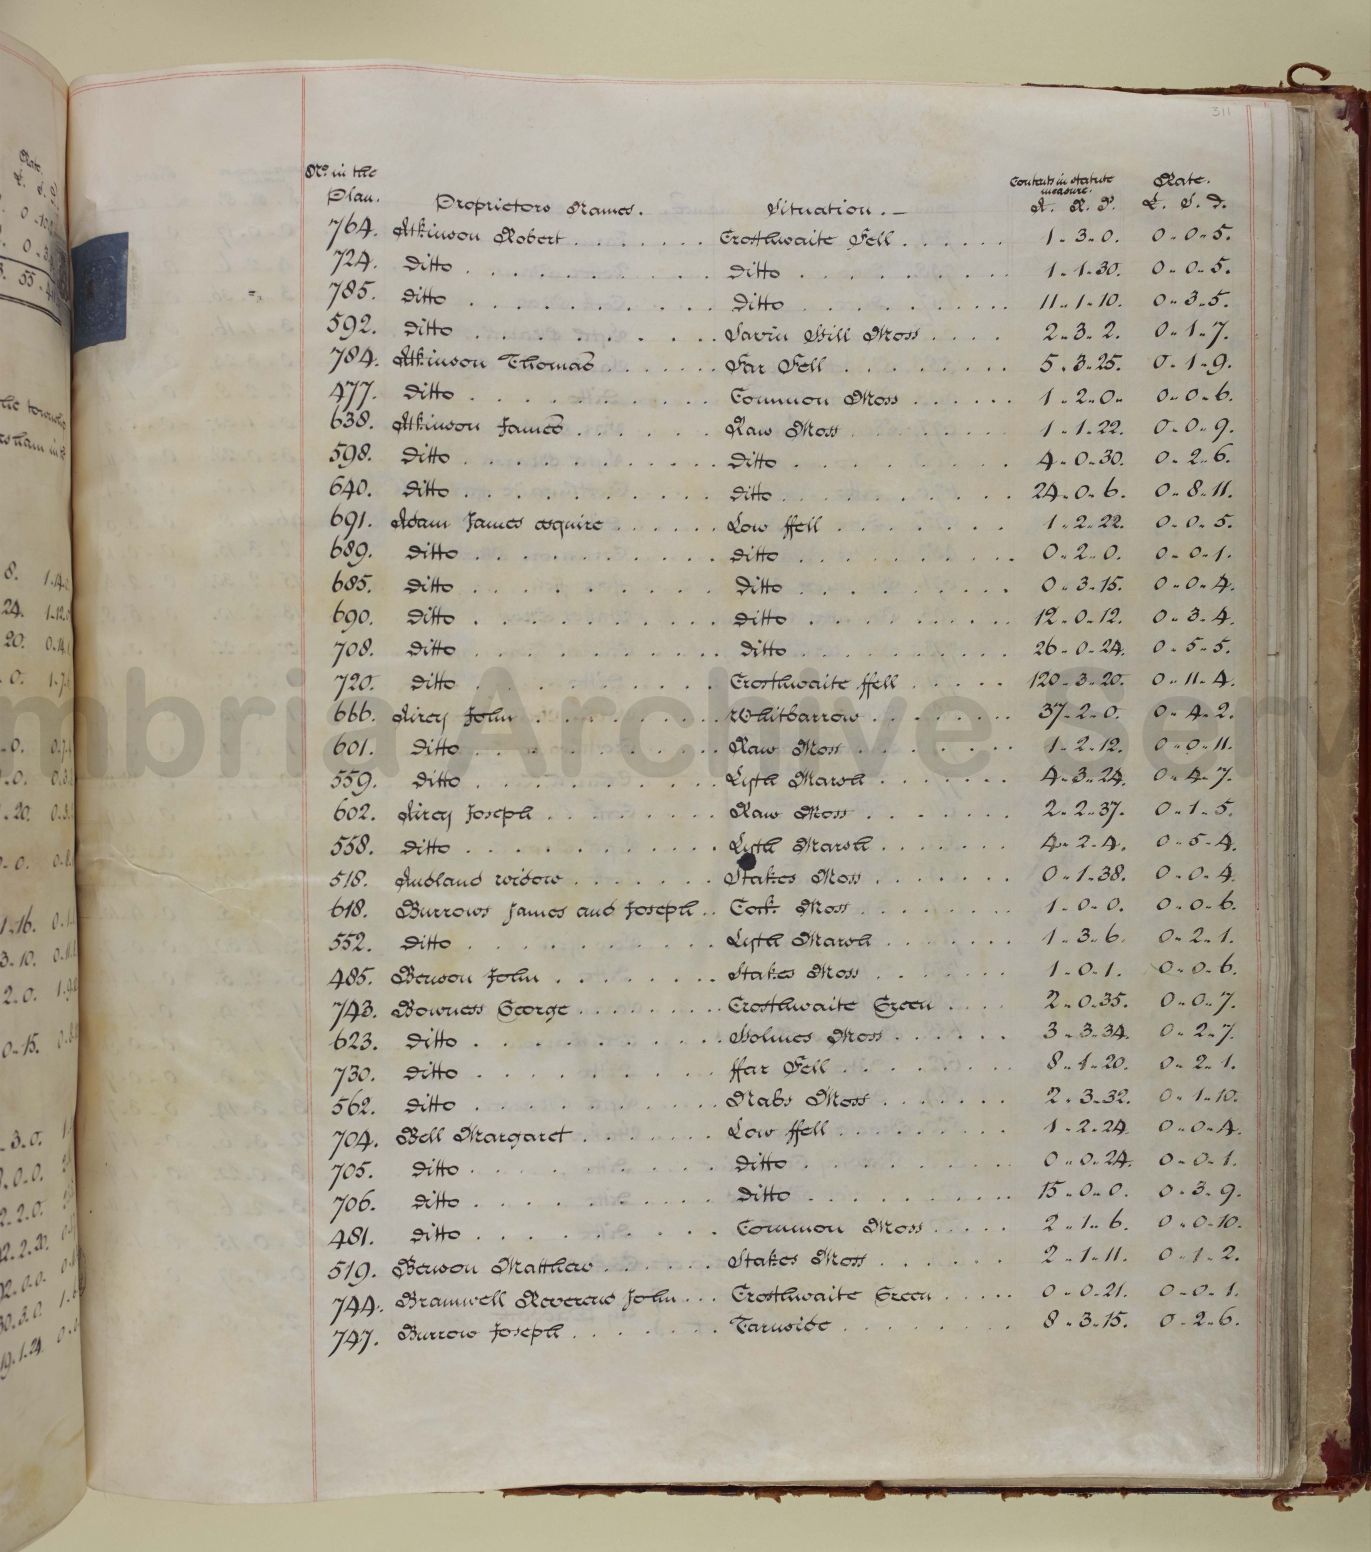 311
No. in the Plan. Proprietors Names. Situation. — Contents in statute measure. A. R. P. Rate. £. S. D.
764. Atkinson Robert . . . . . . . Crosthwaite Fell . . . . . . 1 .. 3 .. 0. 0 .. 0 .. 5.
724. Ditto . . . . . . . . . . Ditto . . . . . . . . . 1 .. 1 .. 30. 0 .. 0 .. 5.
785. Ditto . . . . . . . . . . Ditto . . . . . . . . . 11 .. 1 .. 10. 0 .. 3 .. 5.
592. Ditto . . . . . . . . . . Savin Hill Moss . . . . 2 .. 3 .. 2. 0 .. 1 .. 7.
784. Atkinson Thomas . . . . . . Far Fell . . . . . . . 5 .. 3 .. 25. 0 .. 1 .. 9.
477. Ditto . . . . . . . . . . Common Moss . . . . . . 1 .. 2 .. 0 .. 0 .. 0 .. 6.
638. Atkinson James . . . . . . Raw Moss . . . . . . . . 1 .. 1 .. 22. 0 .. 0 .. 9.
598. Ditto . . . . . . . . . . Ditto . . . . . . . . . 4 .. 0 .. 30. 0 .. 2 .. 6.
640. Ditto . . . . . . . . . . Ditto . . . . . . . . . 24 .. 0 .. 6. 0 .. 8 .. 11.
691. Adam James esquire . . . . . Low ffell . . . . . . . 1 .. 2 .. 22. 0 .. 0 .. 5.
689. Ditto . . . . . . . . . . Ditto . . . . . . . . . 0 .. 2 .. 0. 0 .. 0 .. 1.
685. Ditto . . . . . . . . . . Ditto . . . . . . . . . 0 .. 3 .. 15. 0 .. 0 .. 4.
690. Ditto . . . . . . . . . . Ditto . . . . . . . . . 12 .. 0 .. 12. 0 .. 3 .. 4.
708. Ditto . . . . . . . . . . Ditto . . . . . . . . . 26 .. 0 .. 24. 0 .. 5 .. 5.
720. Ditto . . . . . . . . . . Crosthwaite ffell . . . . . 120 .. 3 .. 20. 0 .. 11 .. 4.
666. Airey John . . . . . . . . Whitbarrow . . . . . . . 37 .. 2 .. 0. 0 .. 4 .. 2.
601. Ditto . . . . . . . . . . Raw Moss . . . . . . . . 1 .. 2 .. 12. 0 .. 0 .. 11.
559. Ditto . . . . . . . . . . Lyth Marsh . . . . . . . 4 .. 3 .. 24. 0 .. 4 .. 7.
602. Airey Joseph . . . . . . . Raw Moss . . . . . . . . 2 .. 2 .. 37. 0 .. 1 .. 5.
558. Ditto . . . . . . . . . . Lyth Marsh . . . . . . . 4 .. 2 .. 4. 0 .. 5 .. 4.
518. Audland widow . . . . . . . Stakes Moss . . . . . . . 0 .. 1 .. 38. 0 .. 0 .. 4.
618. Burrows James and Joseph . . Cock Moss . . . . . . . . 1 .. 0 .. 0. 0 .. 0 .. 6.
552. Ditto . . . . . . . . . . Lyth Marsh . . . . . . . 1 .. 3 .. 6. 0 .. 2 .. 1.
485. Benson John . . . . . . . . Stakes Moss . . . . . . . 1 .. 0 .. 1. 0 .. 0 .. 6.
743. Bowness George . . . . . . . Crosthwaite Green . . . . 2 .. 0 .. 35. 0 .. 0 .. 7.
623. Ditto . . . . . . . . . . Holmes Moss . . . . . . . 3 .. 3 .. 34. 0 .. 2 .. 7.
730. Ditto . . . . . . . . . . ffar Fell . . . . . . . . 8 .. 1 .. 20. 0 .. 2 .. 1.
562. Ditto . . . . . . . . . . Nabs Moss . . . . . . . . 2 .. 3 .. 32. 0 .. 1 .. 10.
704. Bell Margaret . . . . . . . Low ffell . . . . . . . . 1 .. 2 .. 24. 0 .. 0 .. 4.
705. Ditto . . . . . . . . . . Ditto . . . . . . . . . 0 .. 0 .. 24. 0 .. 0 .. 1.
706. Ditto . . . . . . . . . . Ditto . . . . . . . . . 15 .. 0 .. 0. 0 .. 3 .. 9.
481. Ditto . . . . . . . . . . Common Moss . . . . . 2 .. 1 .. 6. 0 .. 0 .. 10.
519. Benson Matthew . . . . . . Stakes Moss . . . . . . . 2 .. 1 .. 11. 0 .. 1 .. 2.
744. Bramwell Reverend John . . . Crosthwaite Green . . . . . 0 .. 0 .. 21. 0 .. 0 .. 1.
747. Burrow Joseph . . . . . . . Tarnside . . . . . . . . 8 .. 3 .. 15. 0 .. 2 .. 6.